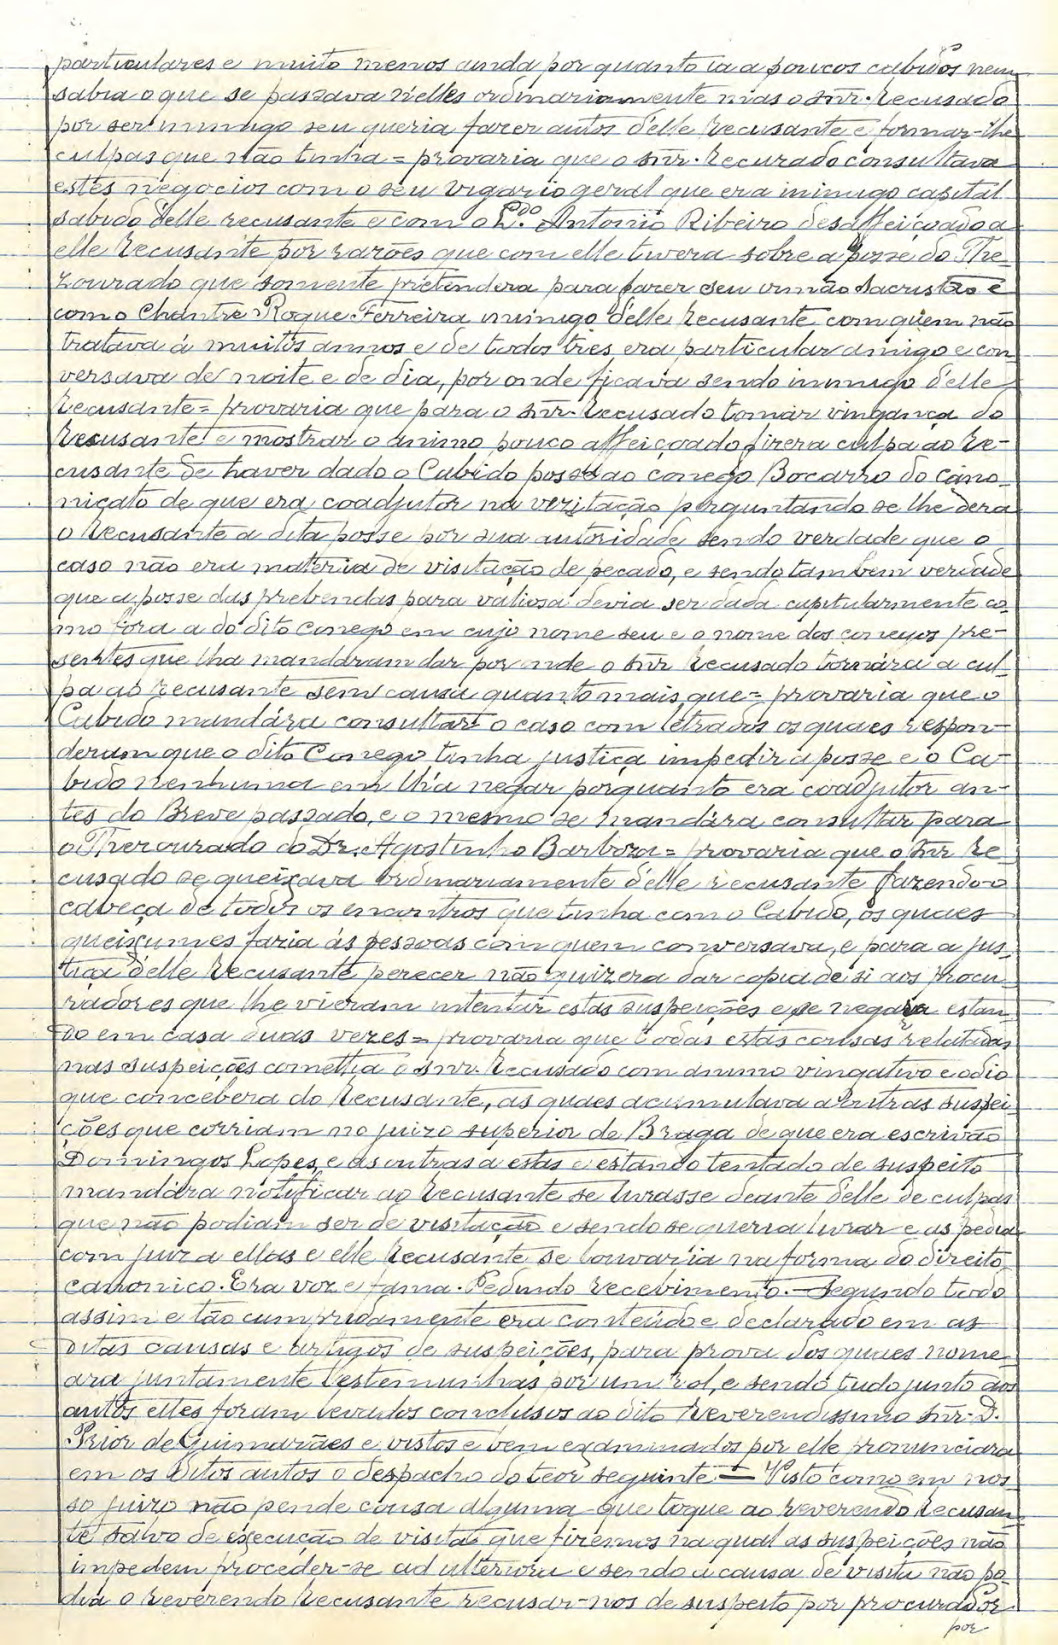 particulares e muito menos ainda por quanto ia a poucos cabidos nem
sabia o que se passava n'elles ordinariamente mas o snr. Recusado
por ser inimigo seu queria fazer autos d'elle Recusante e formar-lhe
culpas que não tinha = provaria que o snr. Recusado consultava
estes negocios com o seu vigario geral que era inimigo capital
sabido d'elle recusante e com o L.do Antonio Ribeiro desaffeiçoado a
elle Recusante por razões que com elle tivera sobre a posse do The-
zourado que somente pretendera para fazer seu irmão Sacristão e
com o Chantre Roque Ferreira inimigo d'elle Recusante com quem não
tratava á muitos annos e de todos tres era particular amigo e con-
versava de noite e de dia, por onde ficava sendo inimigo d'elle
Recusante = provaria que para o snr. Recusado tomar vingança do
Recusante e mostrar o animo pouco affeiçoado fizera culpa ao Re-
cusante de haver dado o Cabido posse ao conego Bocarro do Cano-
nicato de que era coadjutor na vezitação perguntando se lhe dera
o Recusante a dita posse por sua autoridade sendo verdade que o
caso não era materia de visitação de pecado, e sendo tambem verdade
que a posse das prebendas para valiosa devia ser dada capitularmente co-
mo fôra a do dito conego em cujo nome seu e o nome dos conegos pre-
sentes que lha mandaram dar por onde o snr Recusado tornára a cul-
pa ao Recusante sem causa quanto mais que = provaria que o
Cabido mandára consultar o caso com letrados os quaes respon-
deram que o dito Conego tinha justiça impedir a posse e o Ca-
bido nenhuma em lh'a negar porquanto era coadjutor an-
tes do Breve passado, e o mesmo se mandára consultar para
o Thezourado do Dr. Agostinho Barboza = provaria que o snr Re-
cusado se queixava ordinariamente d'elle recusante fazendo-o
cabeça de todos os encontros que tinha com o Cabido, os quaes
queixumes fazia ás pessoas com quem conversava, e para a jus-
tiça d'elle Recusante perecer não quizera dar copia de si aos procu-
radores que lhe vieram intentar estas suspeições e se negava estan-
do em casa duas vezes = provaria que todas estas cousas relatadas
nas suspeições comettia o snr. Recusado com animo vingativo e odio
que concebera do Recusante, as quaes acumulava a outras suspei-
ções que corriam no juizo superior de Braga de que era escrivão
Domingos Lopes, e as outras a estas e estando tentado de suspeito
mandára notificar ao Recusante se livrasse deante d'elle de culpas
que não podiam ser de visitação e sendo se queria livrar e as pedia
com juiz a ellas e elle Recusante se louvaria na forma do direito
canonico. Era voz e fama. Pedindo recevimento. — Segundo todo
assim e tão cumpridamente era conteúdo e declarado em as
ditas causas e artigos de suspeições, para prova dos quaes nome-
ara juntamente testemunhas por um rol, e sendo tudo junto aos
autos elles foram levados conclusos ao dito Reverendissimo snr. D.
Prior de Guimarães e vistos e bem examinados por elle pronunciara
em os ditos autos o despacho do teor seguinte = Visto como em nos-
so juizo não pende causa alguma que toque ao reverendo Recusan-
te salvo de execução de visita que fizemos na qual as suspeições não
impedem proceder-se ad ulteriora e sendo a causa de visita não po-
dia o reverendo Recusante recusar-nos de suspeito por procurador
por